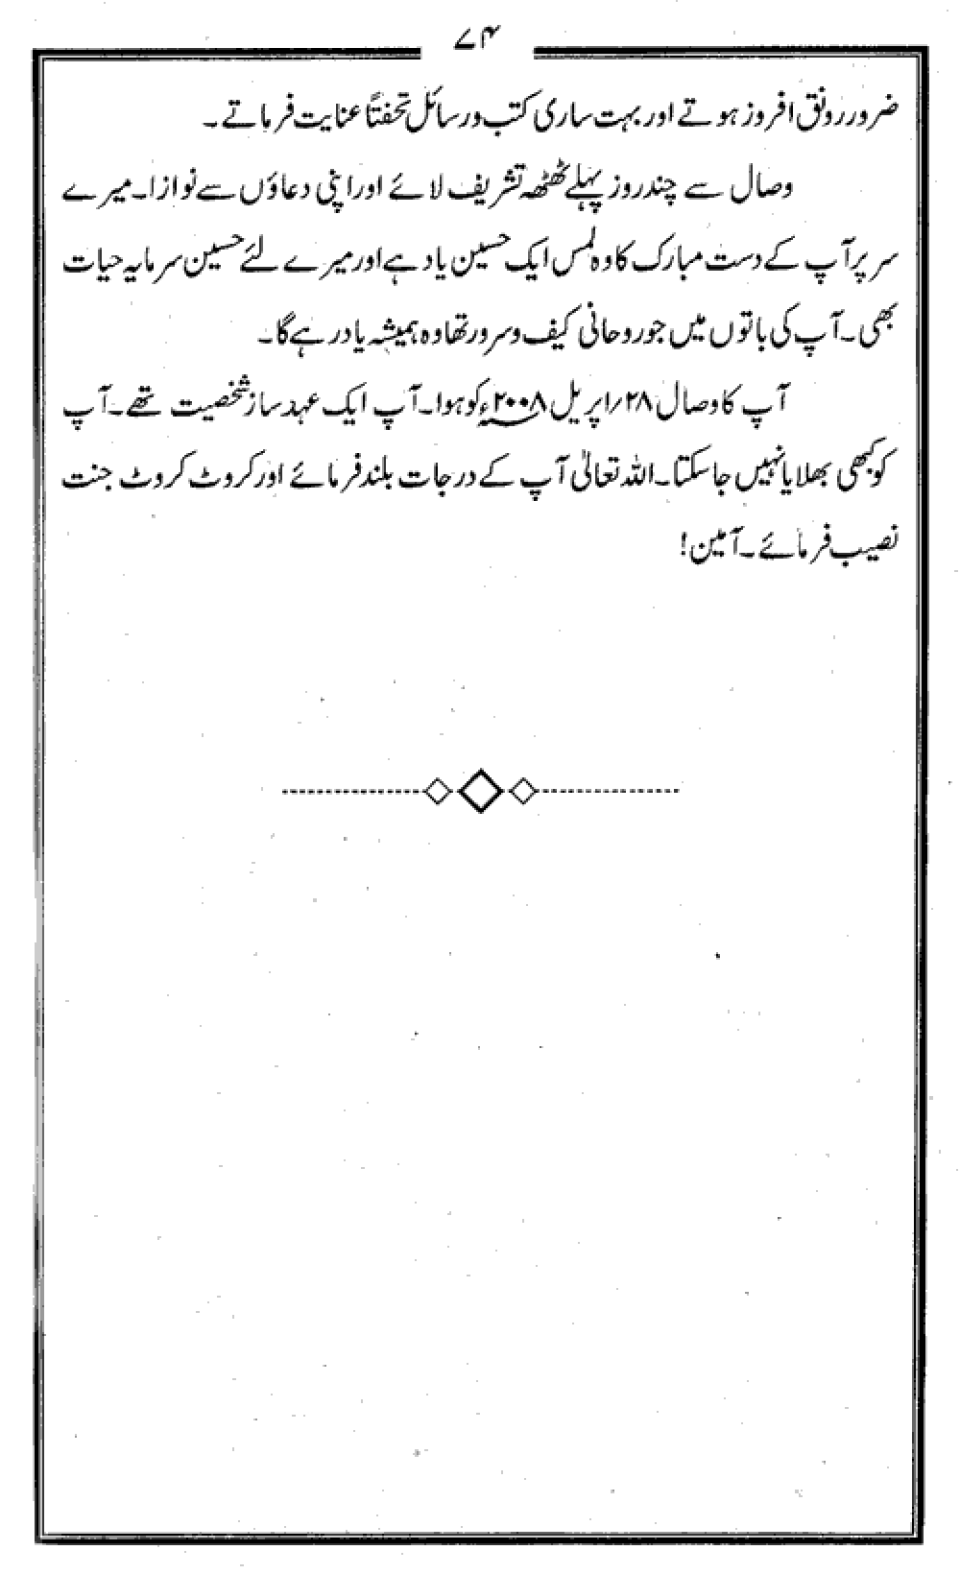 ۷۴
ضرور رونق افروز ہوتے اور بہت ساری کتب و رسائل تحفتاً عنایت فرماتے۔
وصال سے چند روز پہلے ٹھٹھہ تشریف لائے اور اپنی دعاؤں سے نوازا۔ میرے
سر پر آپ کے دست مبارک کا وہ لمس ایک حسین یاد ہے اور میرے لئے حسین سرمایہ حیات
بھی۔ آپ کی باتوں میں جو روحانی کیف و سرور تھا وہ ہمیشہ یاد رہے گا۔
آپ کا وصال ۲۸/اپریل ۲۰۰۸ء کو ہوا۔ آپ ایک عہد ساز شخصیت تھے۔ آپ
کو کبھی بھلایا نہیں جا سکتا۔ اللہ تعالیٰ آپ کے درجات بلند فرمائے اور کروٹ کروٹ جنت
نصیب فرمائے۔ آمین!